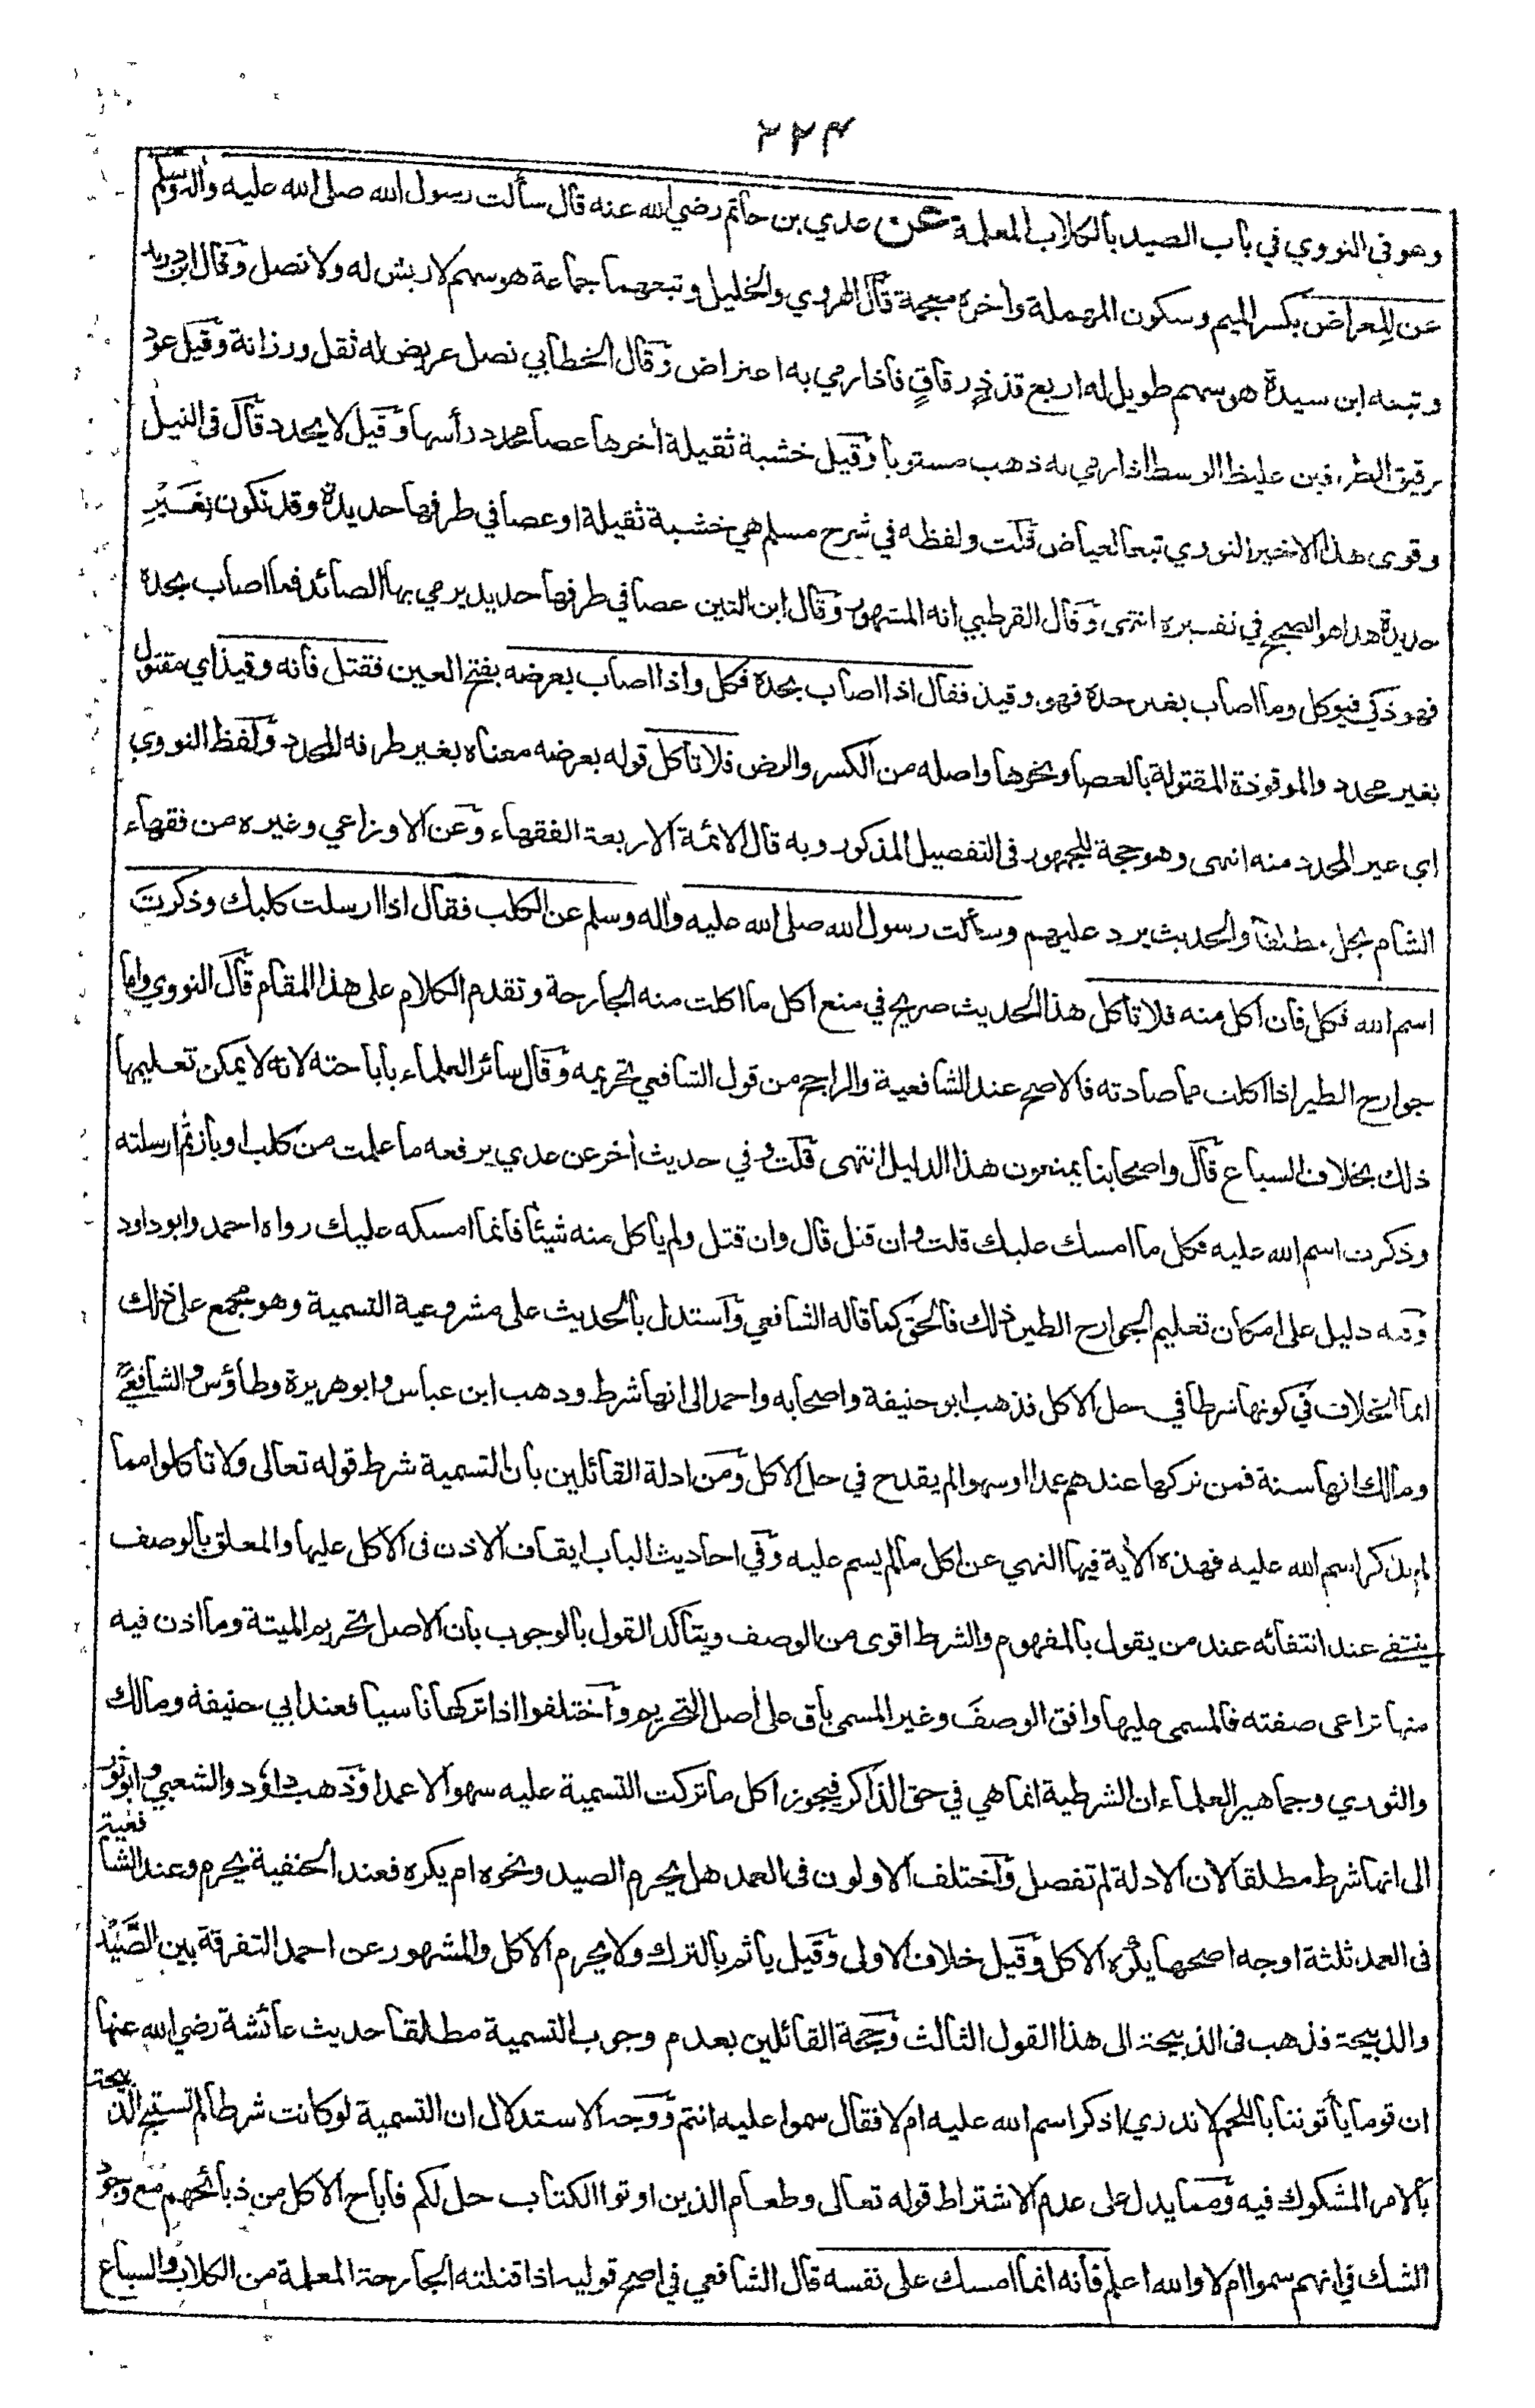 ٢٢٣
وهو في النووي في باب الصيد بالكلاب المعلمة عن عدي بن حاتم رضي الله عنه قال سألت رسول الله صلى الله عليه وأله وسلم
عن المعراض بكسر الميم وسكون المهملة وأخره معجمة قال الهروي والخليل وتبعهما جماعة هو سهم لا ريش له ولا نصل وقال ابن دريد
وتبعه ابن سيدة هو سهم طويل له اربع قذذ رقاق فاذا رمي به اعترض وقال الخطابي نصل عريض له ثقل ورزانة وقيل عود
رقيق الطرفين غليظ الوسط اذا رمي به ذهب مستويا وقيل خشبة ثقيلة أخرها عصا محدد رأسها وقيل لا يحدد قال في النيل
وقوى هذا الاخير النووي تبعا لعياض قلت ولفظه في شرح مسلم هي خشبة ثقيلة او عصا في طرفها حديدة وقد تكون بغير
حديدة هذا هو الصحيح في تفسيره انتهى وقال القرطبي انه المشهور وقال ابن التين عصا في طرفها حديد يرمي بها الصائد فما اصاب بحده
فهو ذكي فيوكل وما اصاب بغير حده فهو وقيذ فقال اذا اصاب بحده فكل واذا اصاب بعرضه بفتح العين فقتل فانه وقيذ اي مقتول
بغير محدد والموقوذة المقتولة بالعصا ونحوها واصله من الكسر والرض فلا تأكل قوله بعرضه معناه بغير طرفه المحدد ولفظ النووي
اي غير المحدد منه انتهى وهو حجة للجمهور في التفصيل المذكور وبه قال الائمة الاربعة الفقهاء وعن الاوزاعي وغيره من فقهاء
الشام يحل مطلقا والحديث يرد عليهم وسألت رسول الله صلى الله عليه وأله وسلم عن الكلب فقال اذا ارسلت كلبك وذكرت
اسم الله فكل فان اكل منه فلا تأكل هذا الحديث صريح في منع اكل ما اكلت منه الجارحة وتقدم الكلام على هذا المقام قال النووي واما
جوارح الطير اذا اكلت مما صادته فالاصح عند الشافعية والراجح من قول الشافعي تحريمه وقال سائر العلماء باباحته لانه لا يمكن تعليمها
ذلك بخلاف السباع قال واصحابنا يمنعون هذا الدليل انتهى قلت وفي حديث أخر عن عدي يرفعه ما علمت من كلب او باز ثم ارسلته
وذكرت اسم الله عليه فكل ما امسك عليك قلت وان قتل قال وان قتل ولم يأكل منه شيئا فانما امسكه عليك رواه احمد وابو داود
وفيه دليل على امكان تعليم الجوارح الطير ذلك فالحق كما قاله الشافعي واستدل بالحديث على مشروعية التسمية وهو مجمع على ذلك
انما الخلاف في كونها شرطا في حل الاكل فذهب ابو حنيفة واصحابه واحمد الى انها شرط وذهب ابن عباس وابو هريرة وطاؤس والشافعي
ومالك انها سنة فمن تركها عندهم عمدا او سهوا لم يقدح في حل الاكل ومن ادلة القائلين بان التسمية شرط قوله تعالى ولا تأكلوا مما
لم يذكر اسم الله عليه فهذه الأية فيها النهي عن اكل ما لم يسم عليه وفي احاديث الباب ايقاف الاذن في الاكل عليها والمعلق بالوصف
ينتفي عند انتفائه عند من يقول بالمفهوم والشرط اقوى من الوصف ويتأكد القول بالوجوب بان الاصل تحريم الميتة وما اذن فيه
منها تراعى صفته فالمسمى عليها وافق الوصف وغير المسمى باق على أصل التحريم واختلفوا اذا تركها ناسيا فعند ابي حنيفة ومالك
والثوري وجماهير العلماء ان الشرطية انما هي في حق الذاكر فيجوز اكل ما تركت التسمية عليه سهوا لا عمدا وذهب داؤد والشعبي وابو ثور
الى انها شرط مطلقا لان الادلة لم تفصل واختلف الاولون في العمد هل يحرم الصيد ونحوه ام يكره فعند الحنفية يحرم وعند الشافعية
في العمد ثلثة اوجه اصحها يكره الاكل وقيل خلاف الاولى وقيل يأثم بالترك ولا يحرم الاكل والمشهور عن احمد التفرقة بين الصيد
والذبيحة فذهب في الذبيحة الى هذا القول الثالث وحجة القائلين بعدم وجوب التسمية مطلقا حديث عائشة رضي الله عنها
ان قوما يأتوننا باللحم لا ندري اذكر اسم الله عليه ام لا فقال سموا عليه انتم ووجه الاستدلال ان التسمية لو كانت شرطا لم تستبح الذبيحة
بالامر المشكوك فيه ومما يدل على عدم الاشتراط قوله تعالى وطعام الذين اوتوا الكتاب حل لكم فاباح الاكل من ذبائحهم مع وجود
الشك في انهم سموا ام لا والله اعلم فانه انما امسك على نفسه قال الشافعي في اصح قوليه اذا قتلته الجارحة المعلمة من الكلاب والسباع